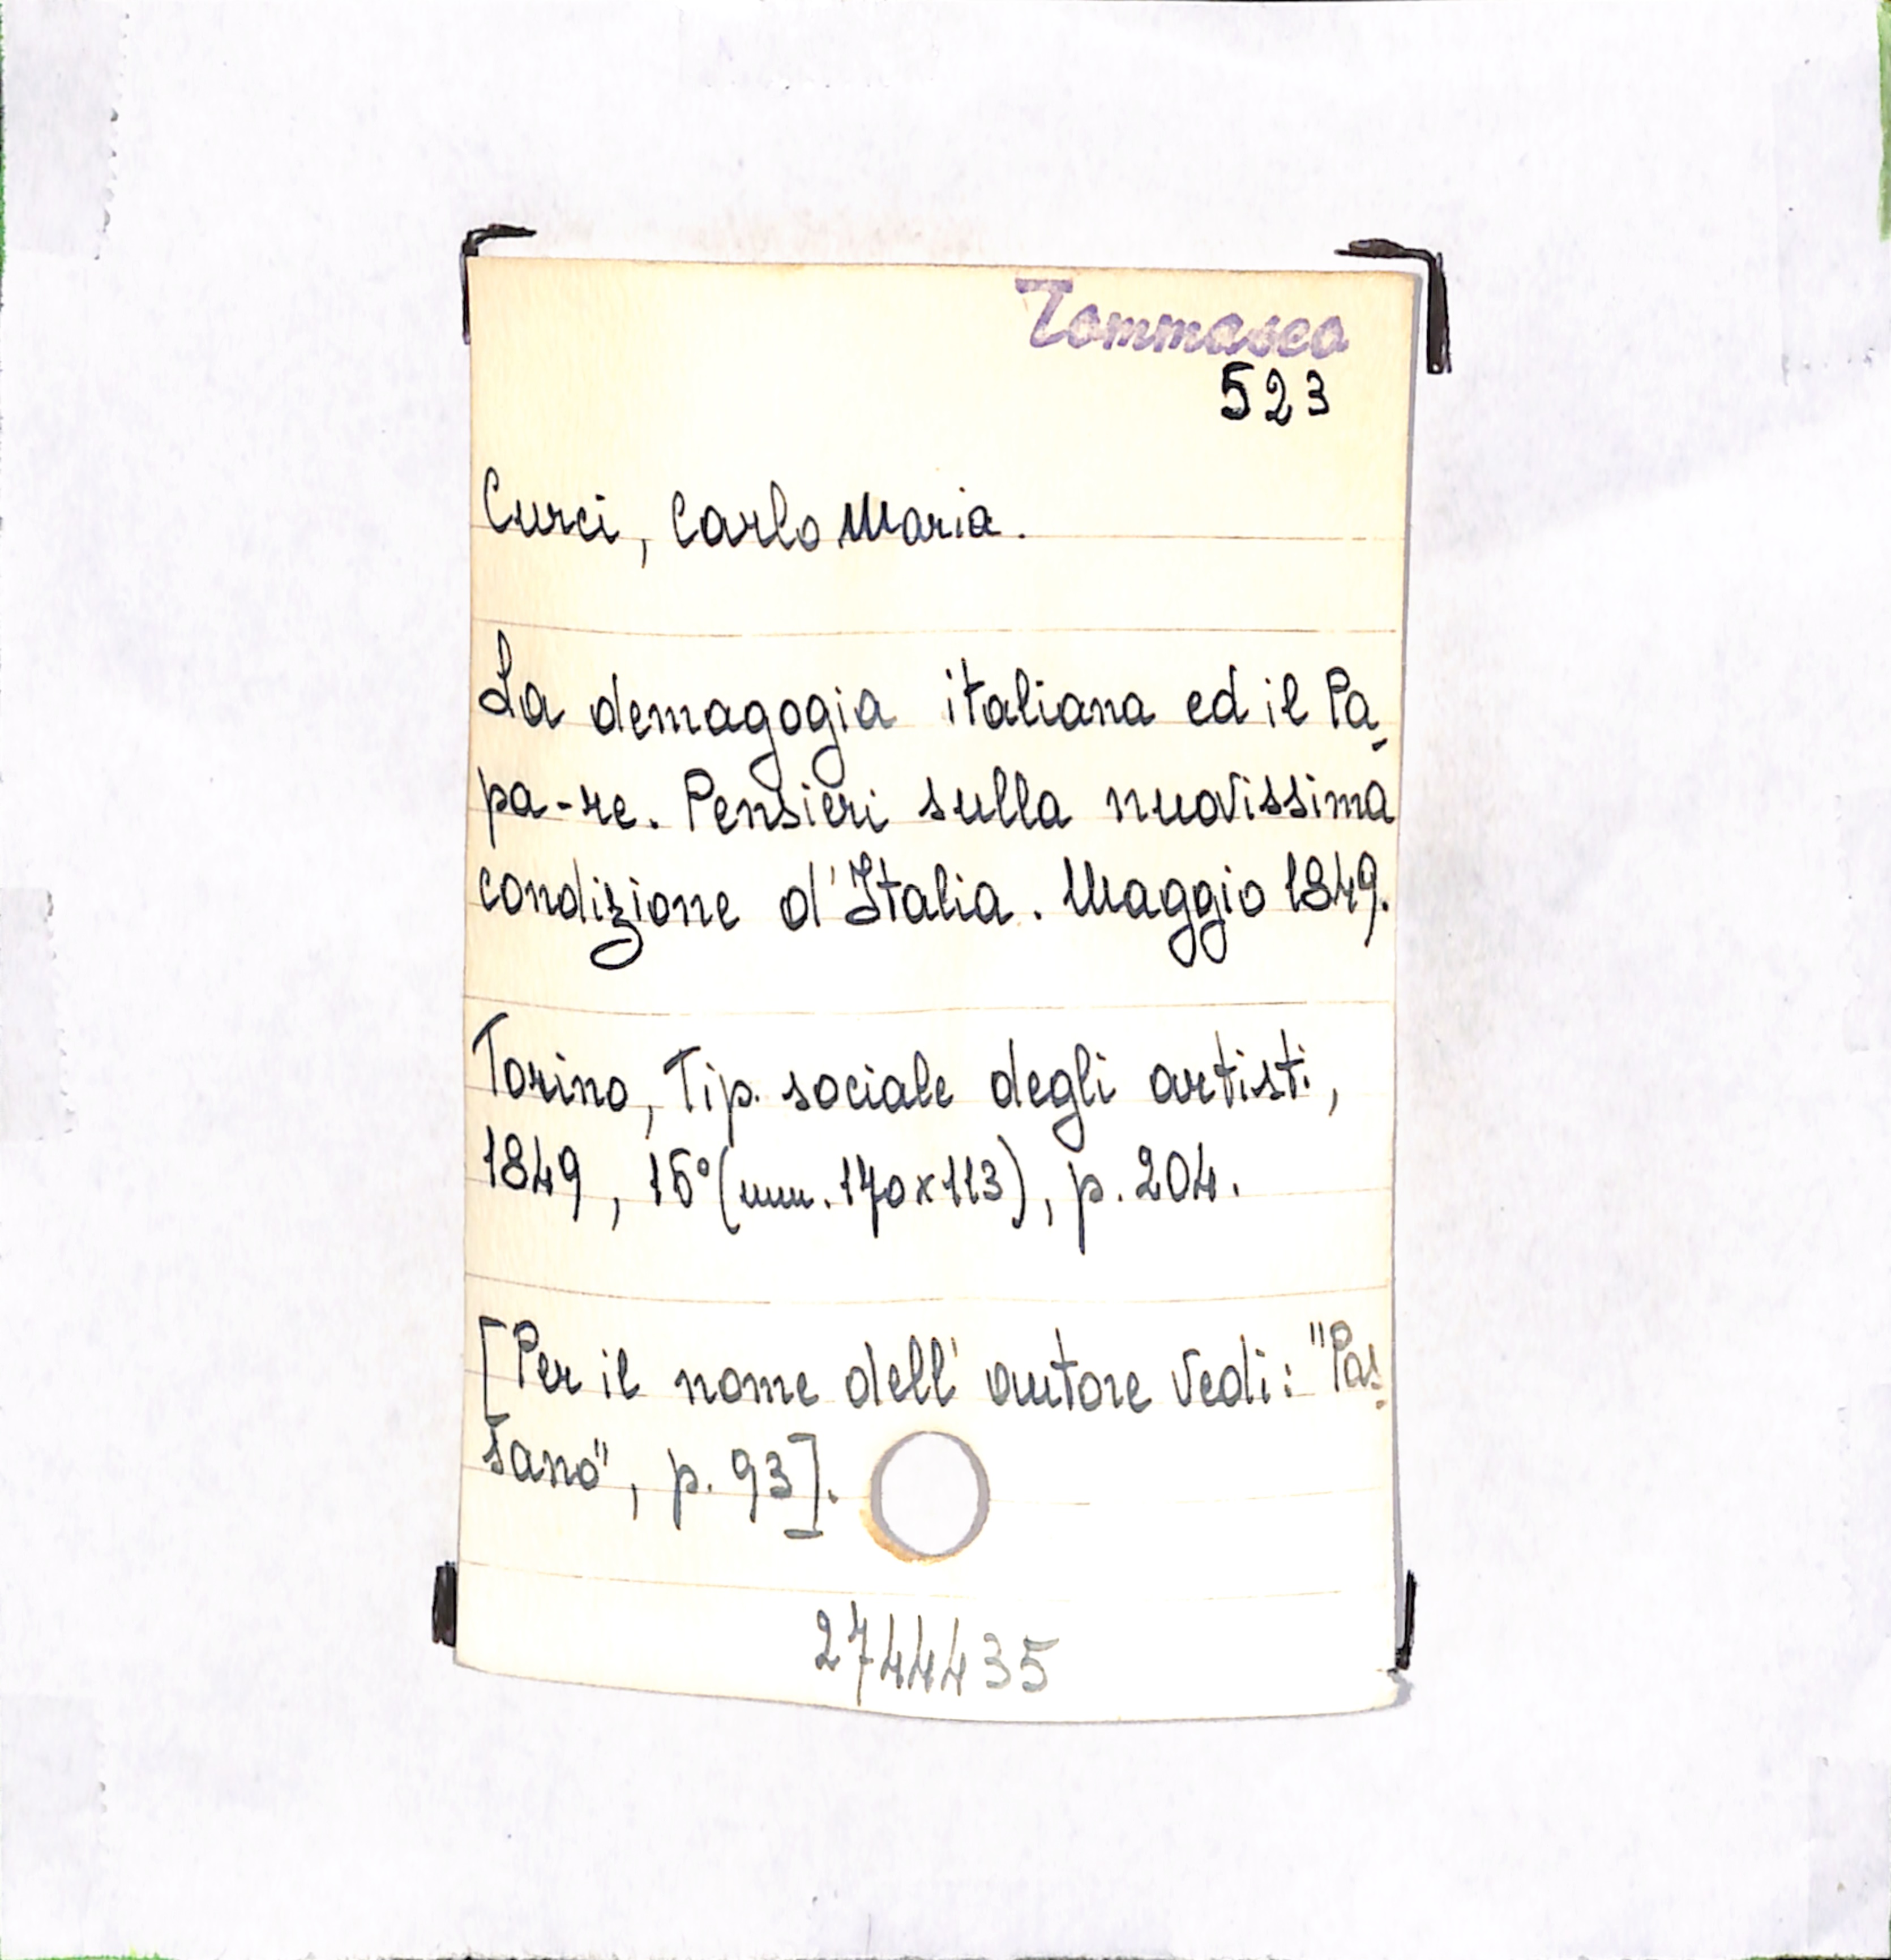 Tommaseo
523
Curci, Carlo Maria.
La demagogia italiana ed il Pa-
pa-re. Pensieri sulla nuovissima
condizione d'Italia. Maggio 1849.
Torino, Tip. sociale degli artisti,
1849, 16° (mm. 170x113), p. 204.
[Per il nome dell'autore vedi: "Pas-
sano", p. 93].
2744435